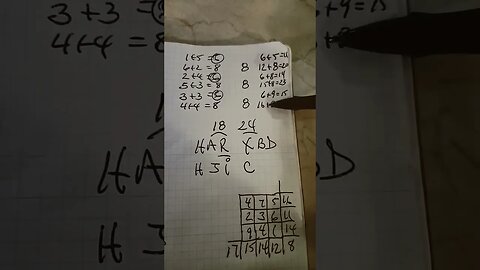 3+3=6
4+4=8
6+9=15
8
1+5=6 6+5=11
6+2=8 8 12+8=20
2+4=6 6+8=14
5+3=8 8 15+8=23
3+3=6 6+9=15
4+4=8 8 16+
18 24
HAR XBD
HJi C
4 7 5 16
2 3 6 11
9 4 1 14
17 15 14 12 8